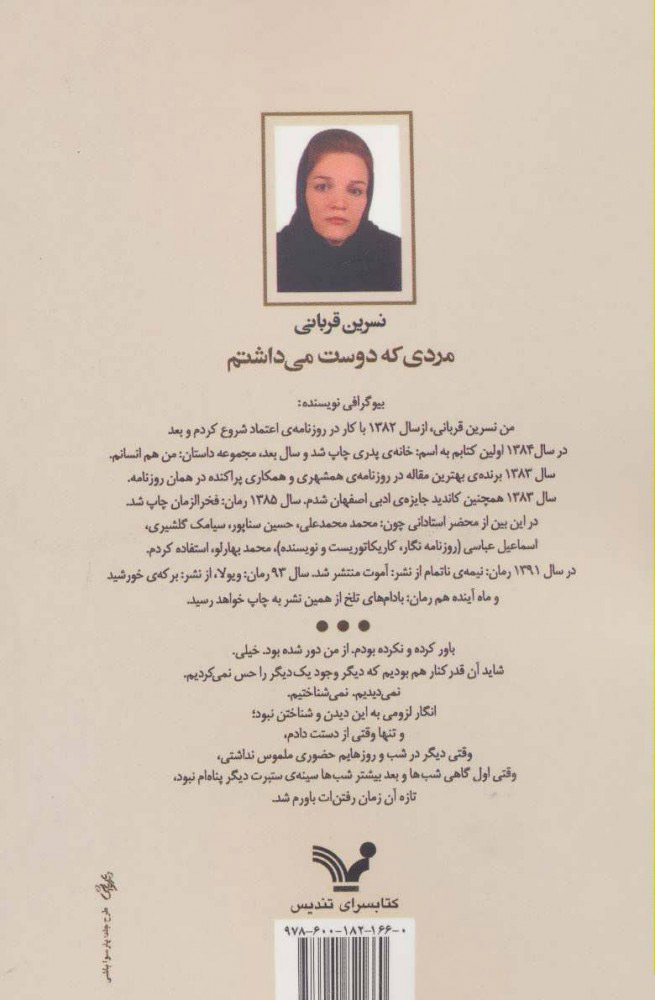 نسرین قربانی
مردی که دوست می‌داشتم
بیوگرافی نویسنده:
من نسرین قربانی، از سال ۱۳۸۲ با کار در روزنامه‌ی اعتماد شروع کردم و بعد
در سال ۱۳۸۴ اولین کتابم به اسم: خانه‌ی پدری چاپ شد و سال بعد، مجموعه داستان: من هم انسانم.
سال ۱۳۸۳ برنده‌ی بهترین مقاله در روزنامه‌ی همشهری و همکاری پراکنده در همان روزنامه.
سال ۱۳۸۳ همچنین کاندید جایزه‌ی ادبی اصفهان شدم. سال ۱۳۸۵ رمان: فخرالزمان چاپ شد.
در این بین از محضر استادانی چون: محمد محمدعلی، حسین سناپور، سیامک گلشیری،
اسماعیل عباسی (روزنامه نگار، کاریکاتوریست و نویسنده)، محمد بهارلو، استفاده کردم.
در سال ۱۳۹۱ رمان: نیمه‌ی ناتمام از نشر: آموت منتشر شد. سال ۹۳ رمان: ویولا، از نشر: برکه‌ی خورشید
و ماه آینده هم رمان: بادام‌های تلخ از همین نشر به چاپ خواهد رسید.
باور کرده و نکرده بودم. از من دور شده بود. خیلی.
شاید آن قدر کنار هم بودیم که دیگر وجود یک‌دیگر را حس نمی‌کردیم.
نمی‌دیدیم. نمی‌شناختیم.
انگار لزومی به این دیدن و شناختن نبود؛
و تنها وقتی از دستت دادم،
وقتی دیگر در شب و روزهایم حضوری ملموس نداشتی،
وقتی اول گاهی شب‌ها و بعد بیشتر شب‌ها سینه‌ی ستبرت دیگر پناه‌ام نبود،
تازه آن زمان رفتن‌ات باورم شد.
کتابسرای تندیس
۹۷۸-۶۰۰-۱۸۲-۱۶۶-۰
طرح جلد: